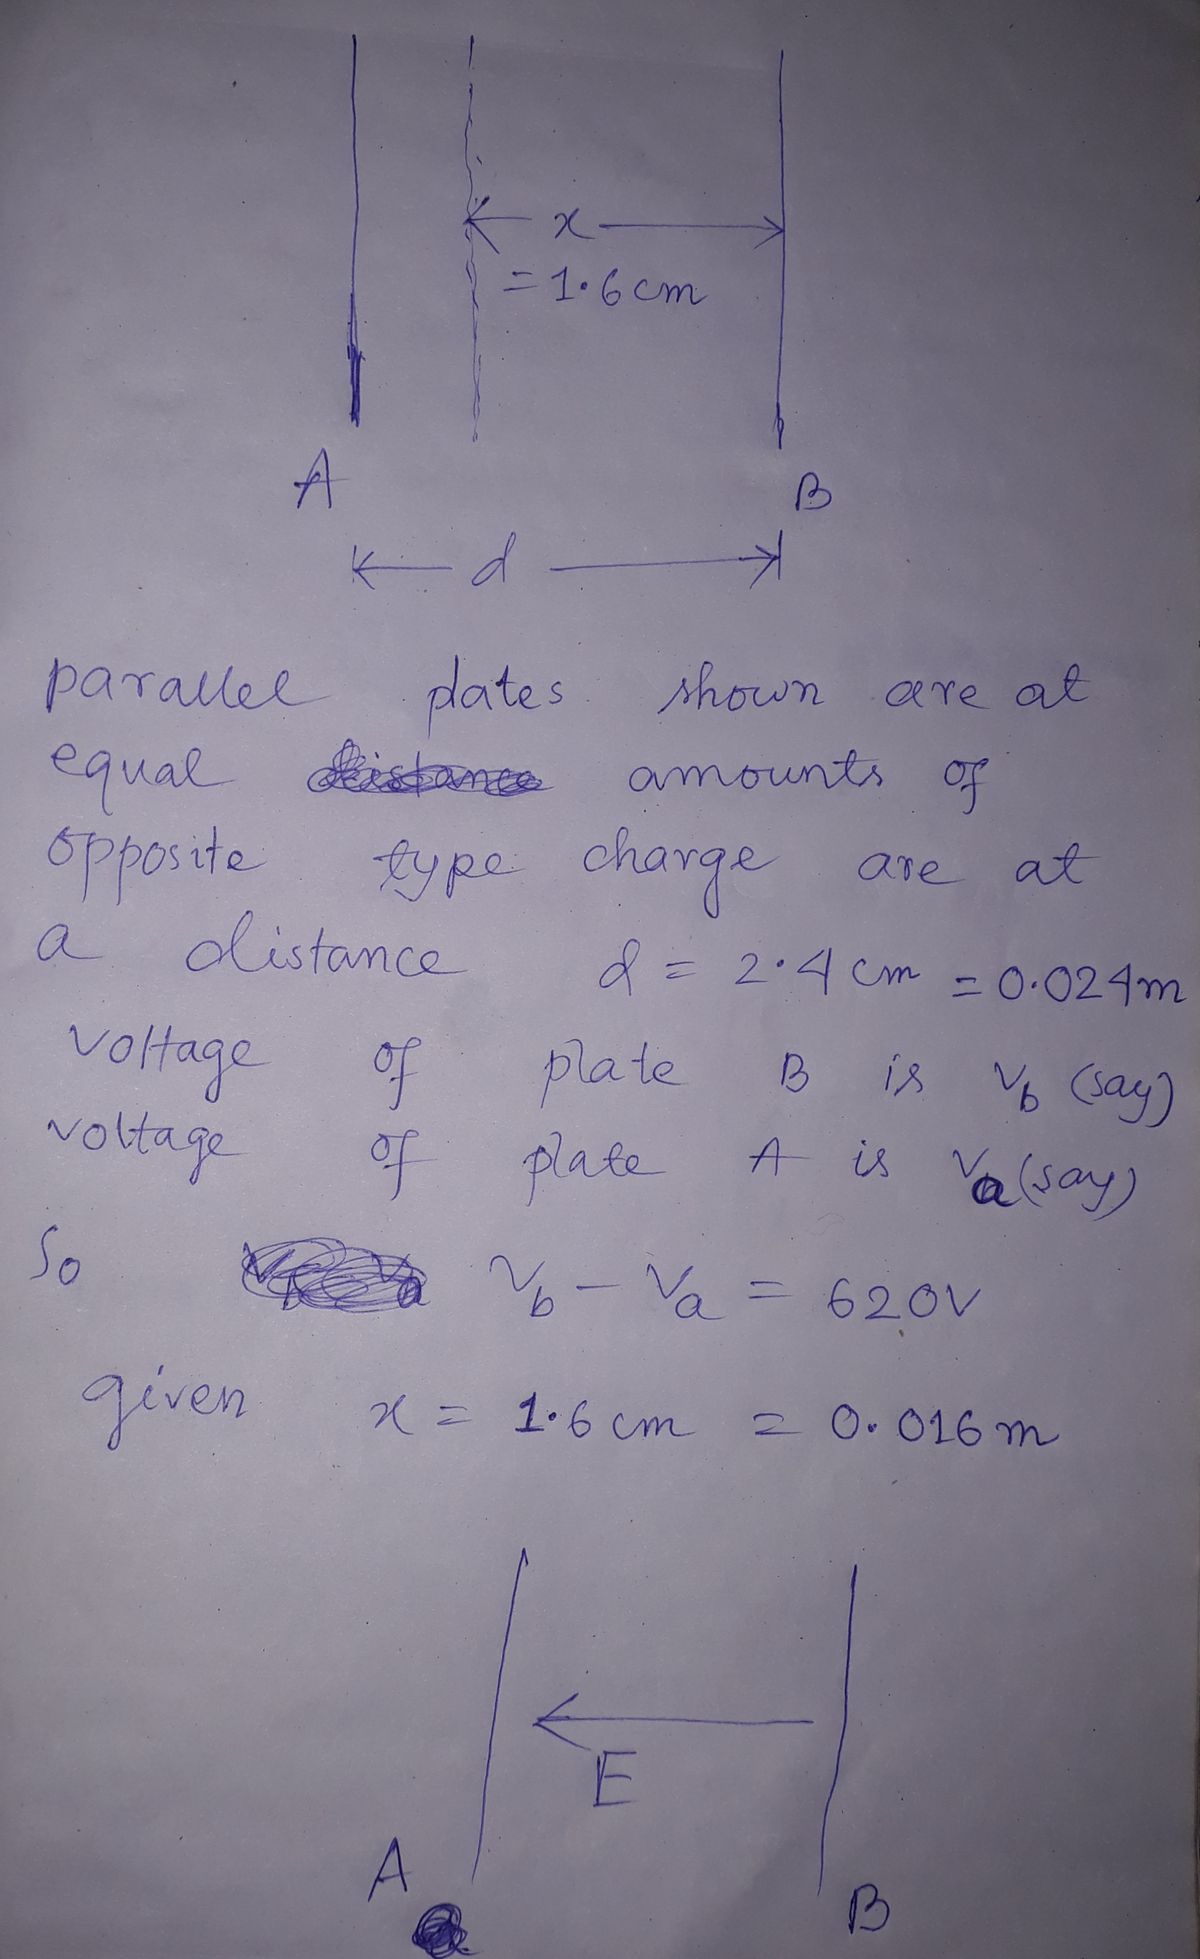 x
= 1.6 cm
A B
d
parallel plates shown are at
equal distance amounts of
opposite type charge are at
a distance d = 2.4 cm = 0.024m
voltage of plate B is Vb (say)
voltage of plate A is Va (say)
So Vb - Va = 620V
given x = 1.6 cm = 0.016 m
E
A B